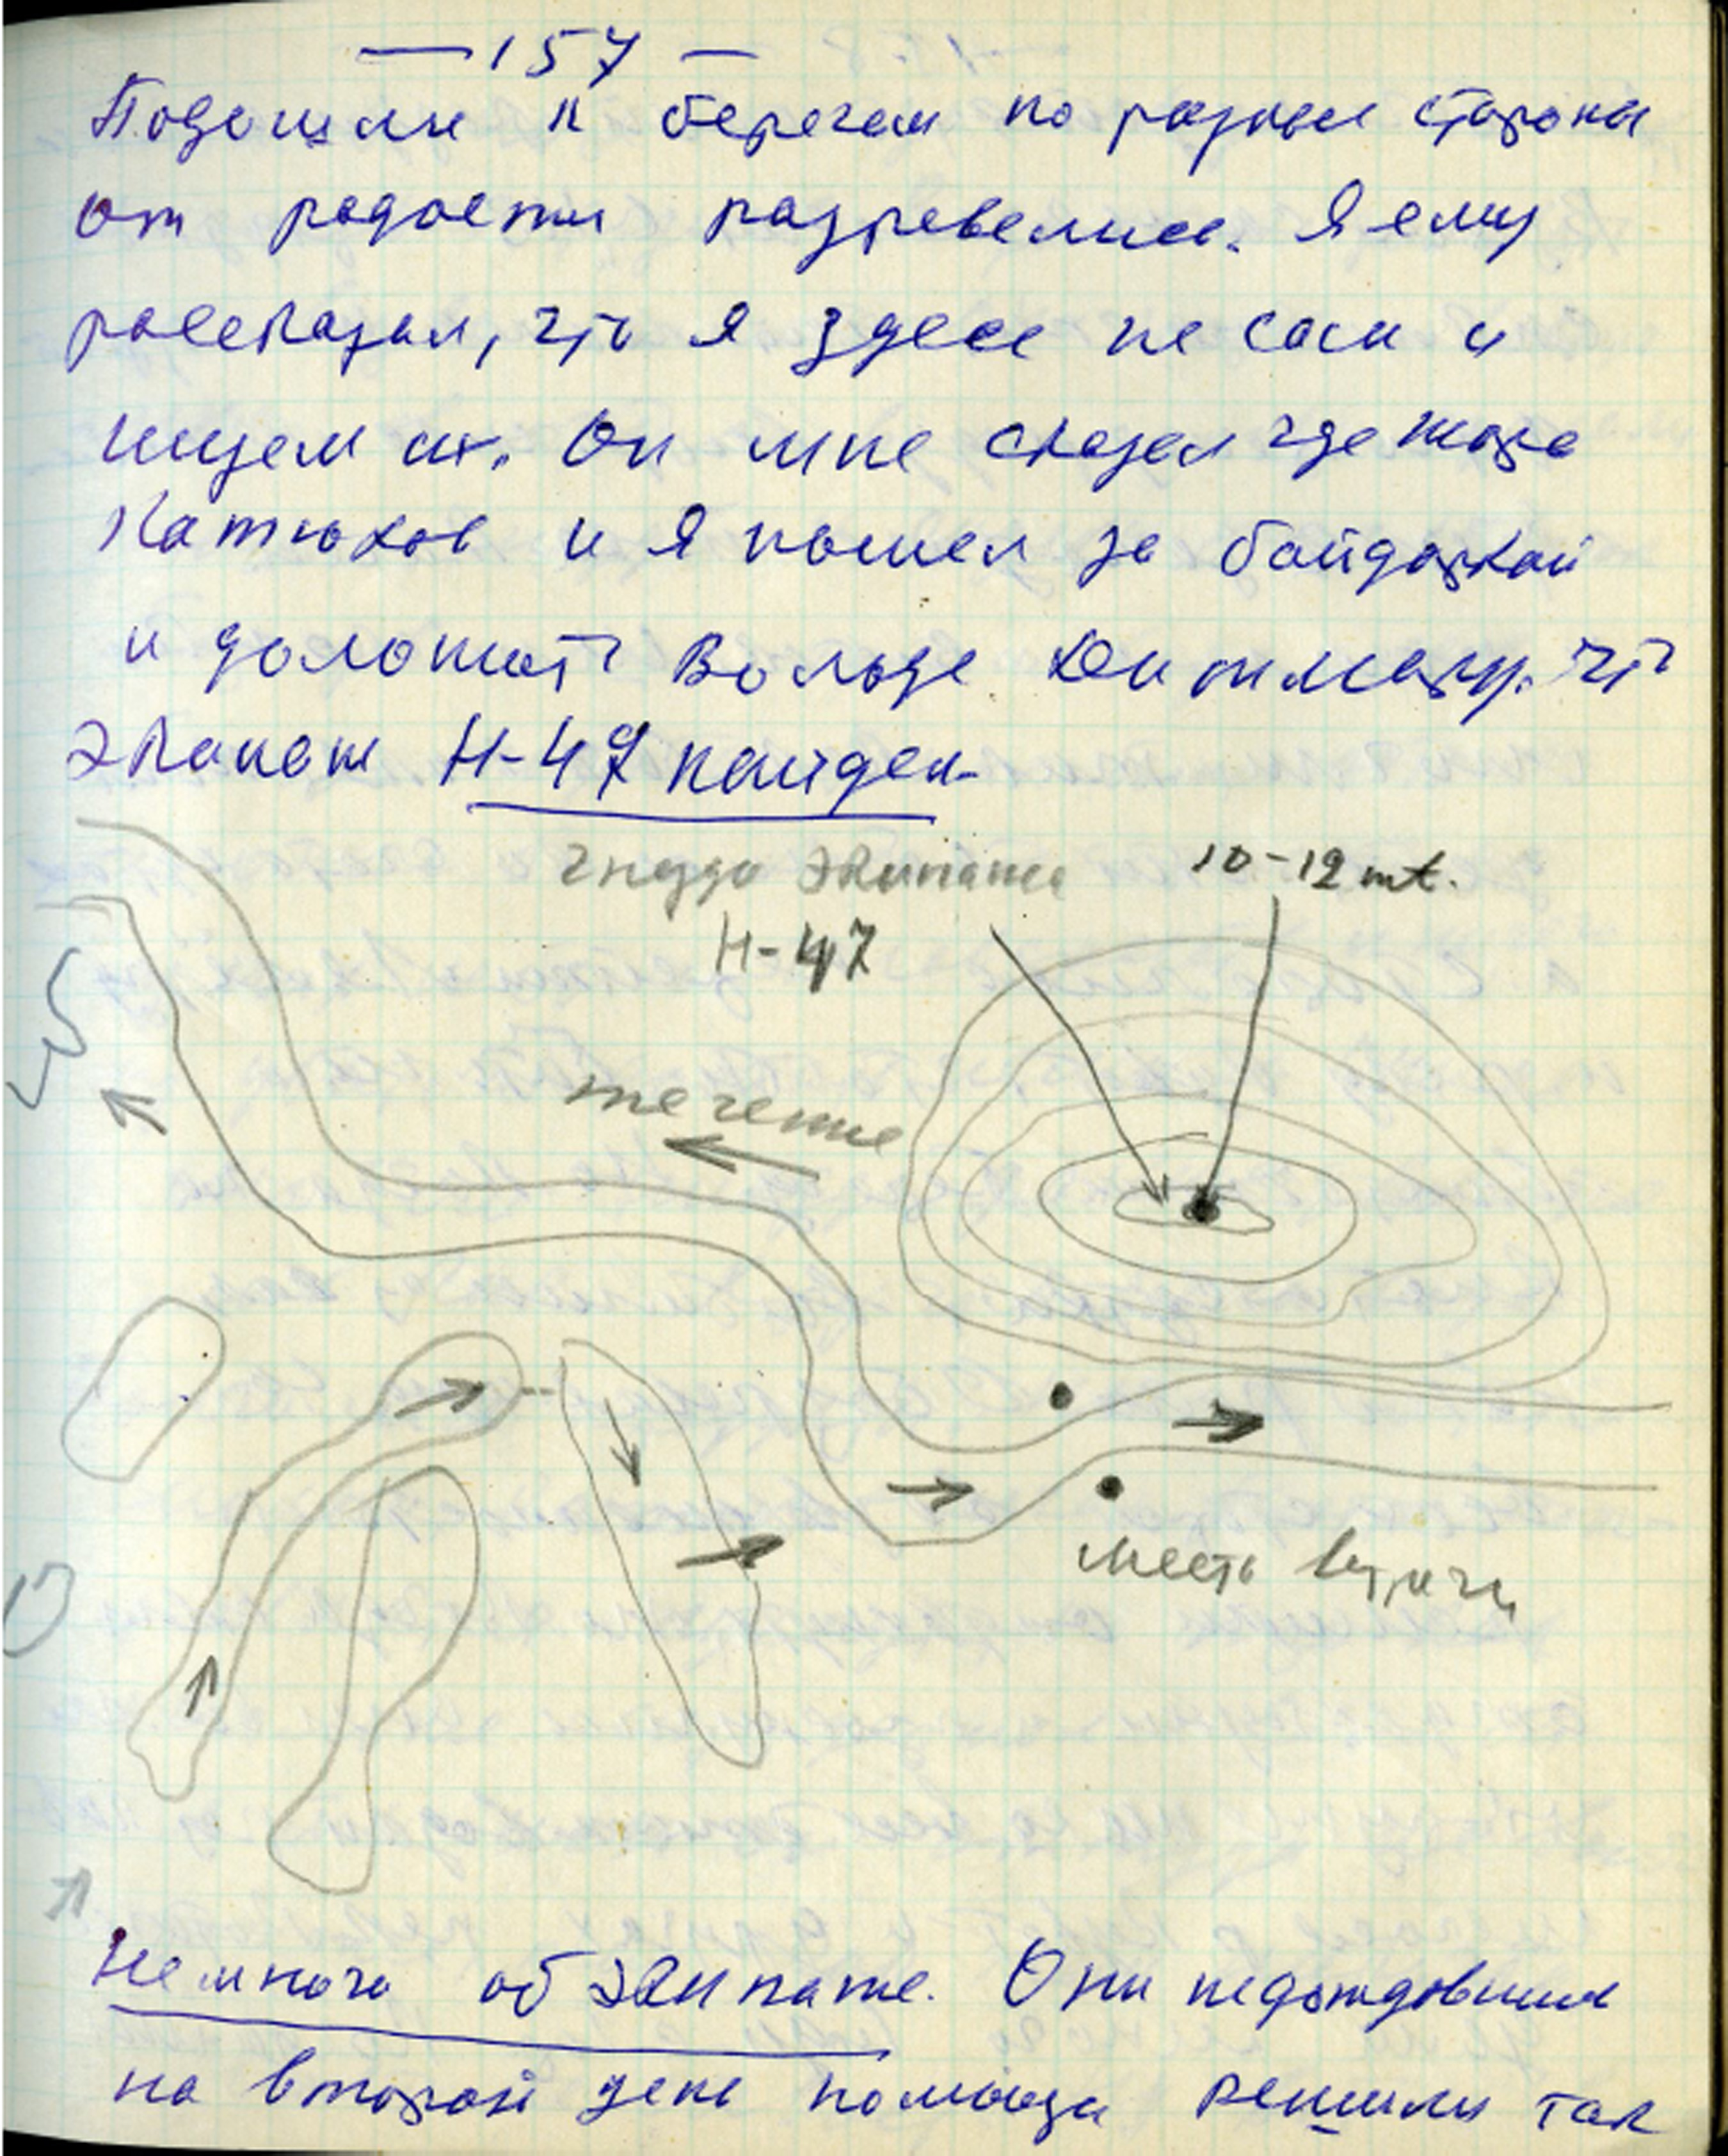 — 157 —
Подошли к берегам по разные стороны
от радости разревелись. Я ему
рассказал, что я здесь не сам и
ищем их. Он мне сказал где тоже
Катюхов и я пошел за байдаркой
и доложить Вольде Дитмару. что
экипаж Н-47 найден
гнездо экипажа
Н-47
10-12 mt.
течение
место встречи
Немного об экипаже. Они недождавшись
на второй день помощи решили так